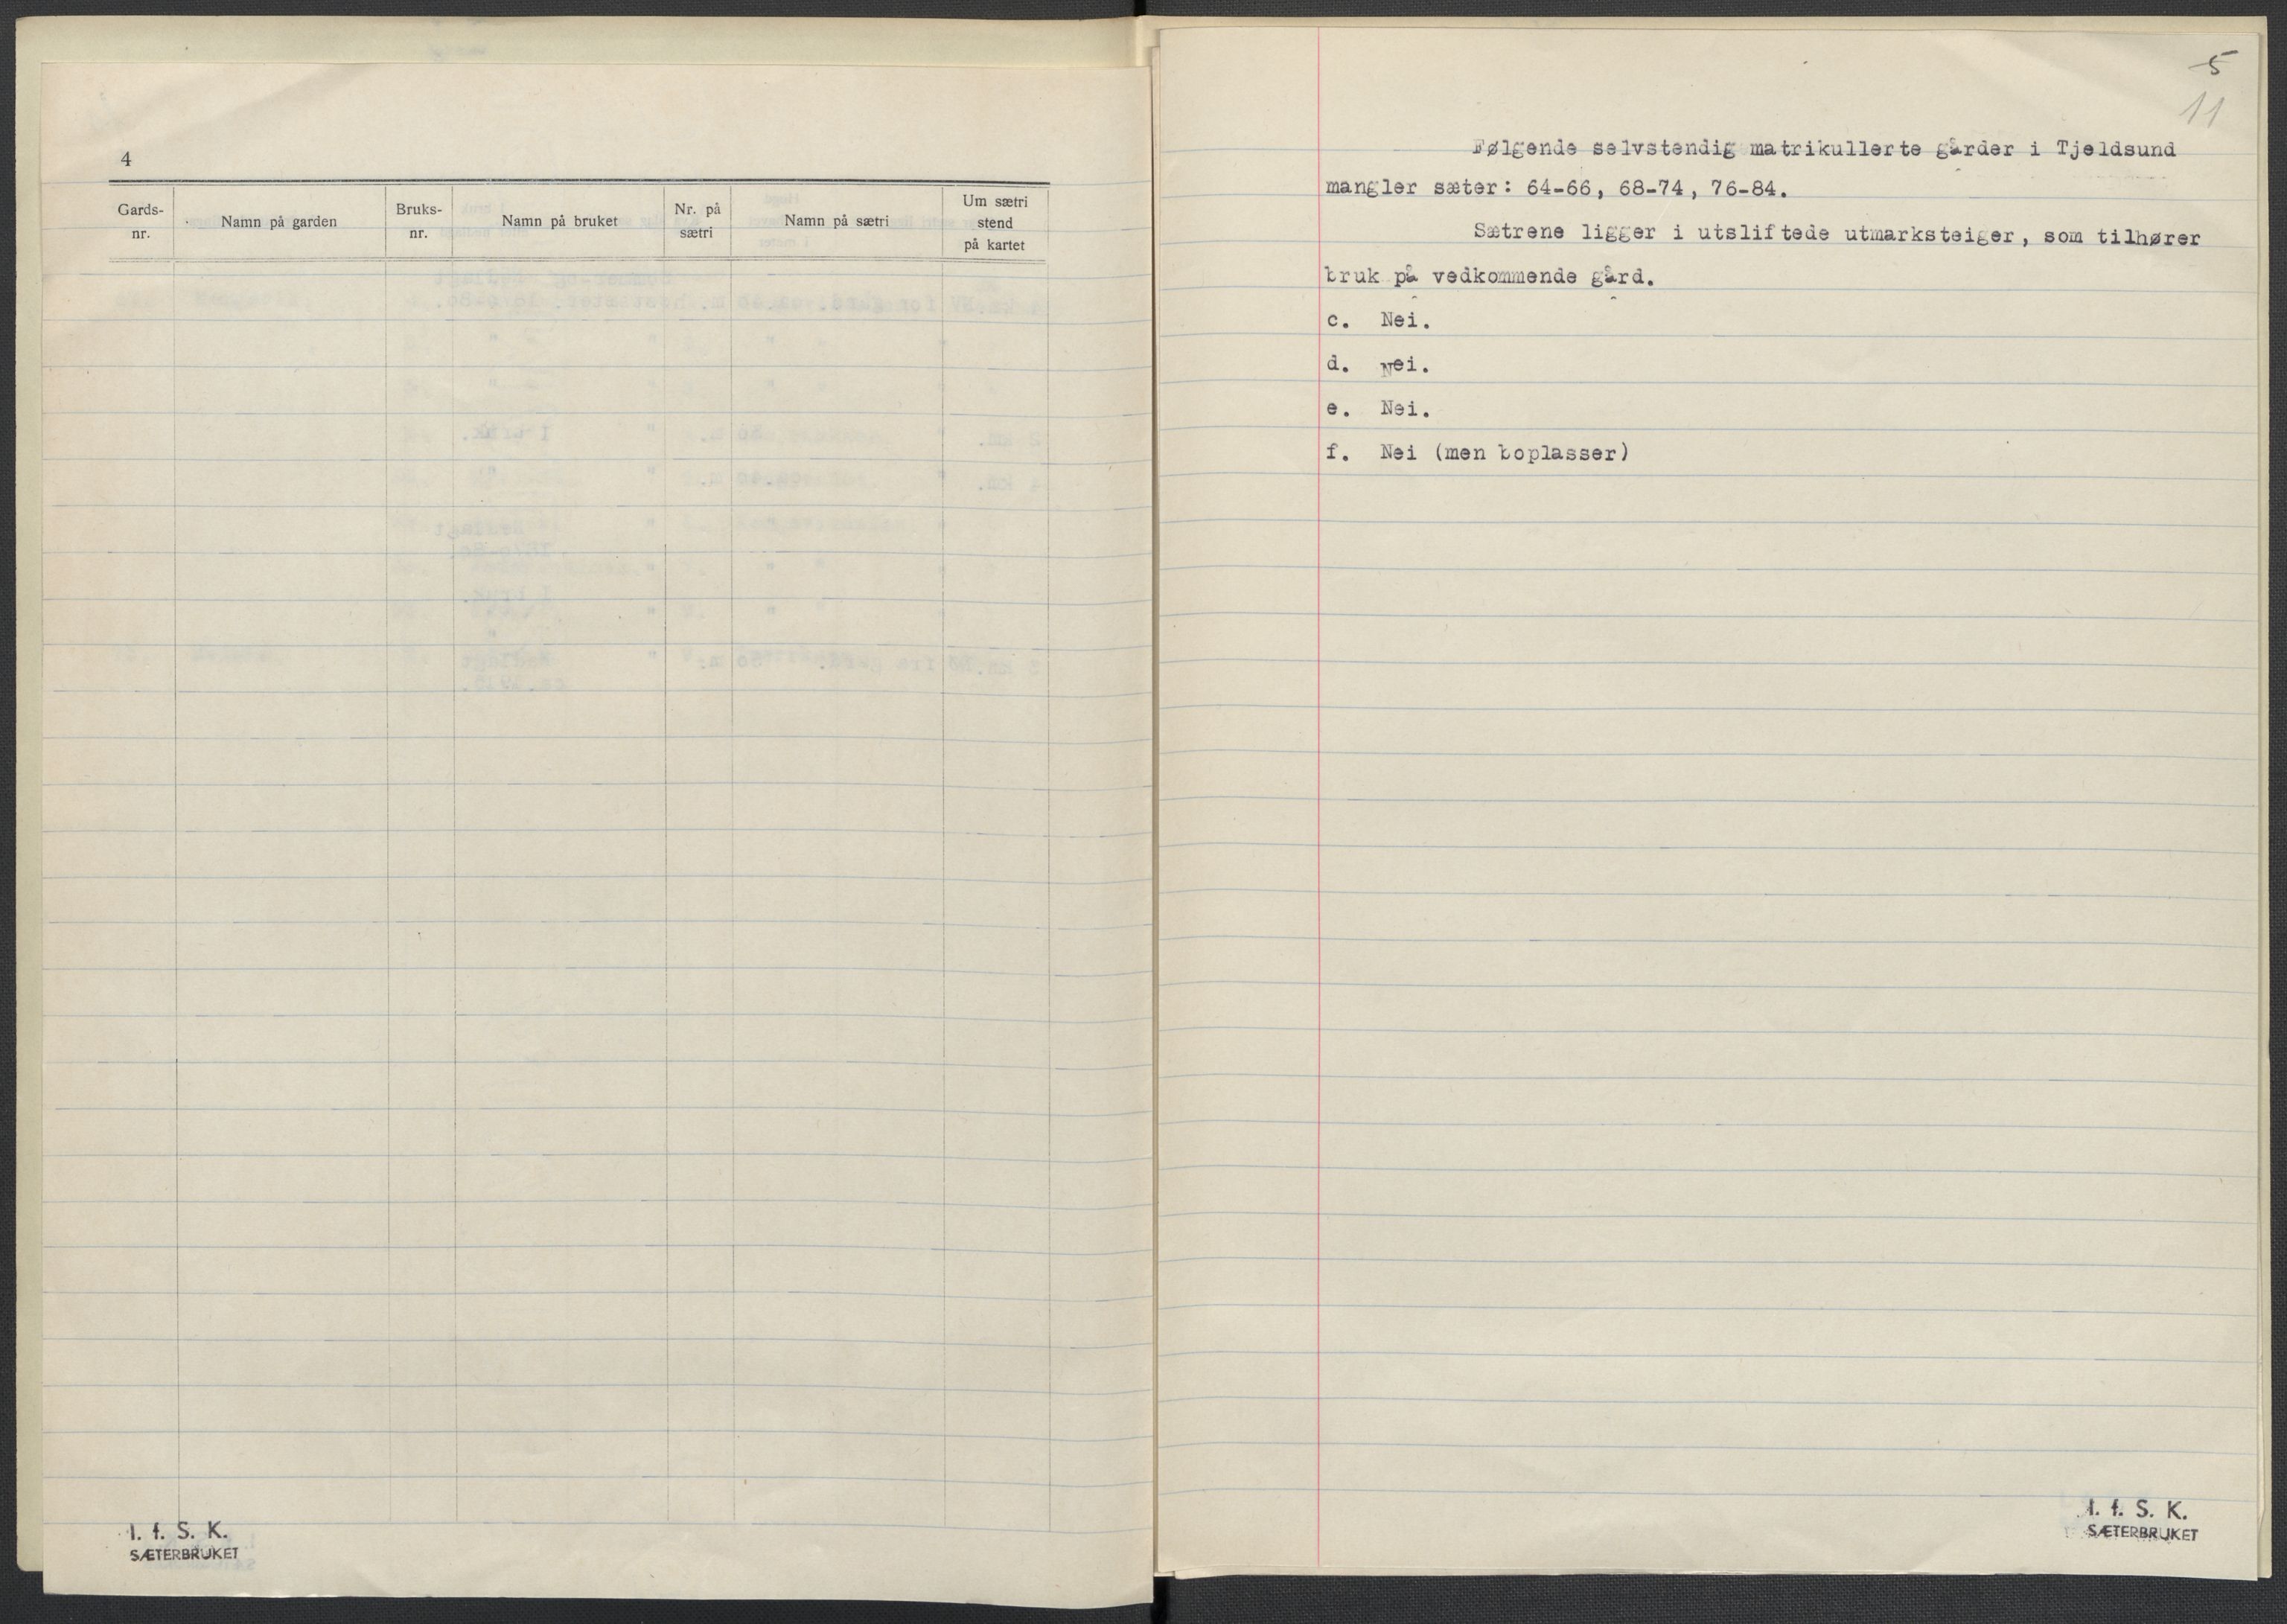 4
Gards-
nr.
Namn på garden
Bruks-
nr.
Namn på bruket
Nr. på
sætri
Namn på sætri
Um sætri
stend
på kartet
I. f. S. K.
SÆTERBRUKET
5
11
Følgende selvstendig matrikullerte gårder i Tjeldsund
mangler sæter: 64-66, 68-74, 76-84.
Sætrene ligger i utsliftede utmarksteiger, som tilhører
bruk på vedkommende gård.
c. Nei.
d. Nei.
e. Nei.
f. Nei (men boplasser)
I. f. S. K.
SÆTERBRUKET